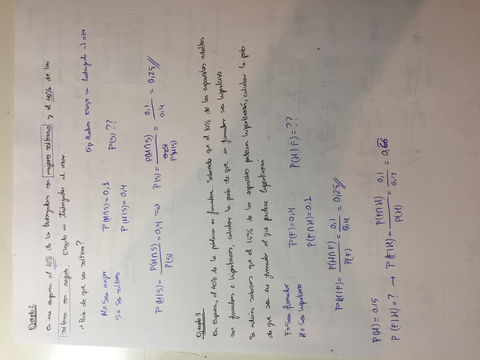 Ejemplo 2
En una empresa el 10% de los trabajadores son mujeres solteras y el 40% de los
solteros son mujeres. Elegido un trabajador al azar
· Prob de que sea soltera?
M = Ser mujer P(M∩S) = 0,1
S = Ser soltera P(M|S) = 0,4 P(S) ??
P(M|S) = P(M∩S) / P(S) = 0,4 ⇒ P(S) = P(M∩S) / P(M|S) = 0,1 / 0,4 = 0,25//
Ejemplo 3
En España, el 40% de la población es fumadora. Sabiendo que el 10% de los españoles adultos
son fumadores e hipertensos, calcular la prob de que un fumador sea hipertenso
Si además sabemos que el 15% de los españoles padecen hipertensión, calcular la prob.
de que sea fumador el que padece hipertensión
F = Ser fumador P(F) = 0,4
H = Ser hipertenso P(F∩H) = 0,1 P(H|F) = ??
P(H|F) = P(H∩F) / P(F) = 0,1 / 0,4 = 0,25//
P(H) = 0,15
P(F|H) = ? → P(F|H) = P(F∩H) / P(H) = 0,1 / 0,15 = 0,66